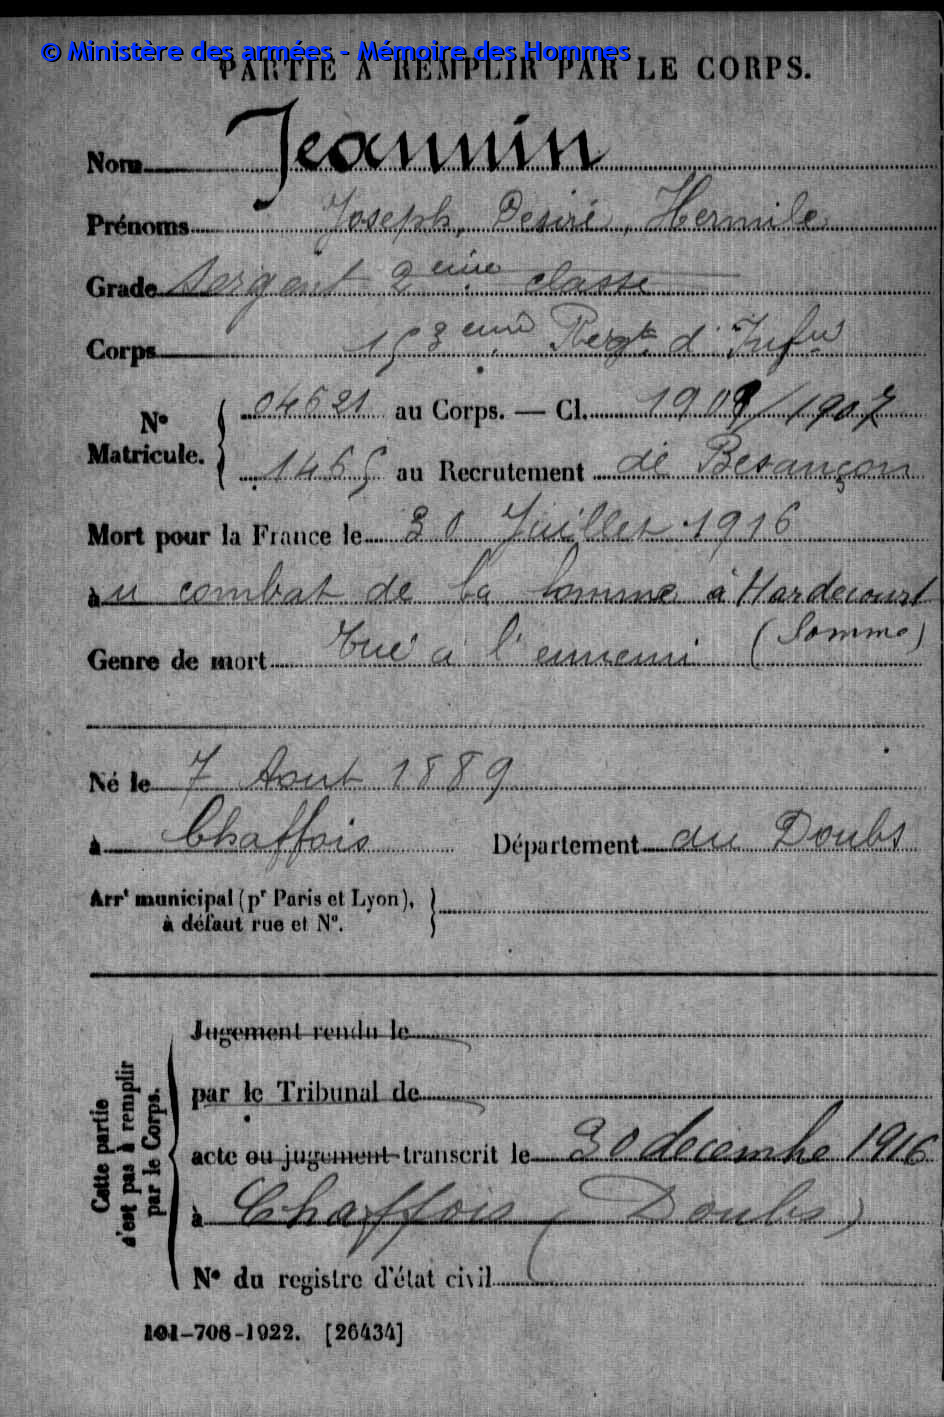 © Ministère des armées - Mémoire des Hommes
PARTIE À REMPLIR PAR LE CORPS.
Nom Jeannin
Prénoms Joseph, Desiré, Hermile
Grade Sergent 2eme classe
Corps 153eme Regt d'Infie
No Matricule. 04621 au Corps. — Cl. 1909/1907
1465 au Recrutement de Besançon
Mort pour la France le 30 Juillet 1916
au combat de la Somme à Hardecourt
(Somme)
Genre de mort Tué à l'ennemi
Né le 7 Aout 1889
à Chaffois Département du Doubs
Arrt municipal (pr Paris et Lyon),
à défaut rue et No.
Cette partie
n'est pas à remplir
par le Corps.
Jugement rendu le
par le Tribunal de
acte ou jugement transcrit le 30 decembre 1916
à Chaffois (Doubs)
No du registre d'état civil
101-708-1922. [26434]